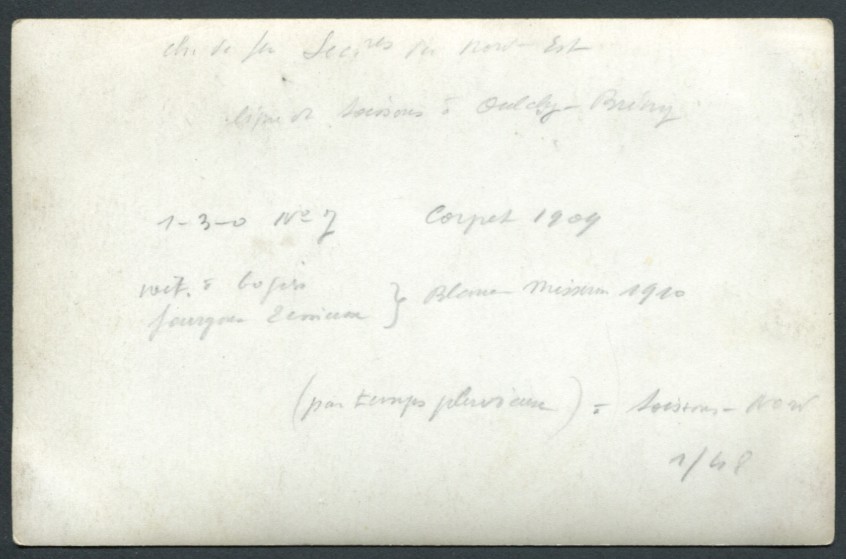 ch. de fer Sec.res du Nord-Est
ligne de Soissons à Oulchy-Brény
1-3-0 No 7 Corpet 1909
voit. à bogies
fourgon 2 essieux } Blanc Misseron 1910
(par temps pluvieux) à Soissons-Nord
1/48